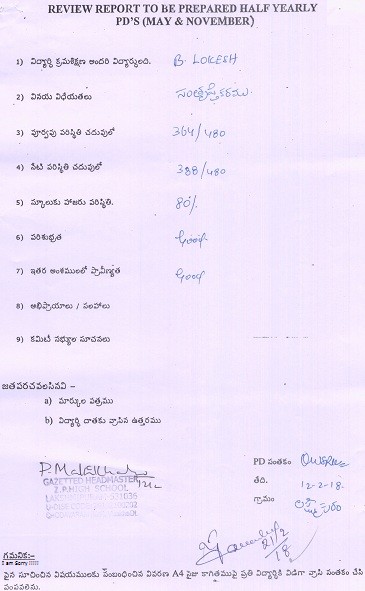 REVIEW REPORT TO BE PREPARED HALF YEARLY
PD'S (MAY & NOVEMBER)
1) విద్యార్ధి క్రమశిక్షణ అందరి విద్యార్థులది. B. LOKESH
2) వినయ విధేయతలు సంతృప్తికరము.
3) పూర్వపు పరిస్థితి చదువులో 364/480
4) నేటి పరిస్థితి చదువులో 388/480
5) స్కూలుకు హాజరు పరిస్థితి. 80%
6) పరిశుభ్రత Good.
7) ఇతర అంశములలో ప్రావీణ్యత Good
8) అభిప్రాయాలు / సలహాలు
9) కమిటీ సభ్యుల సూచనలు
జతపరచవలసినవి -
a) మార్కుల పత్రము
b) విద్యార్ధి దాతకు వ్రాసిన ఉత్తరము
GAZETTED HEADMASTER
Z.P.HIGH SCHOOL
PD సంతకం
తేది. 12-2-18.
గ్రామం
21/2
18
గమనిక:-
I am Sorry !!!!!
పైన సూచించిన విషయములకు సంబంధించిన వివరణ A4 సైజు కాగితముపై ప్రతి విద్యార్థికి విడిగా వ్రాసి సంతకం చేసి
పంపవలెను.